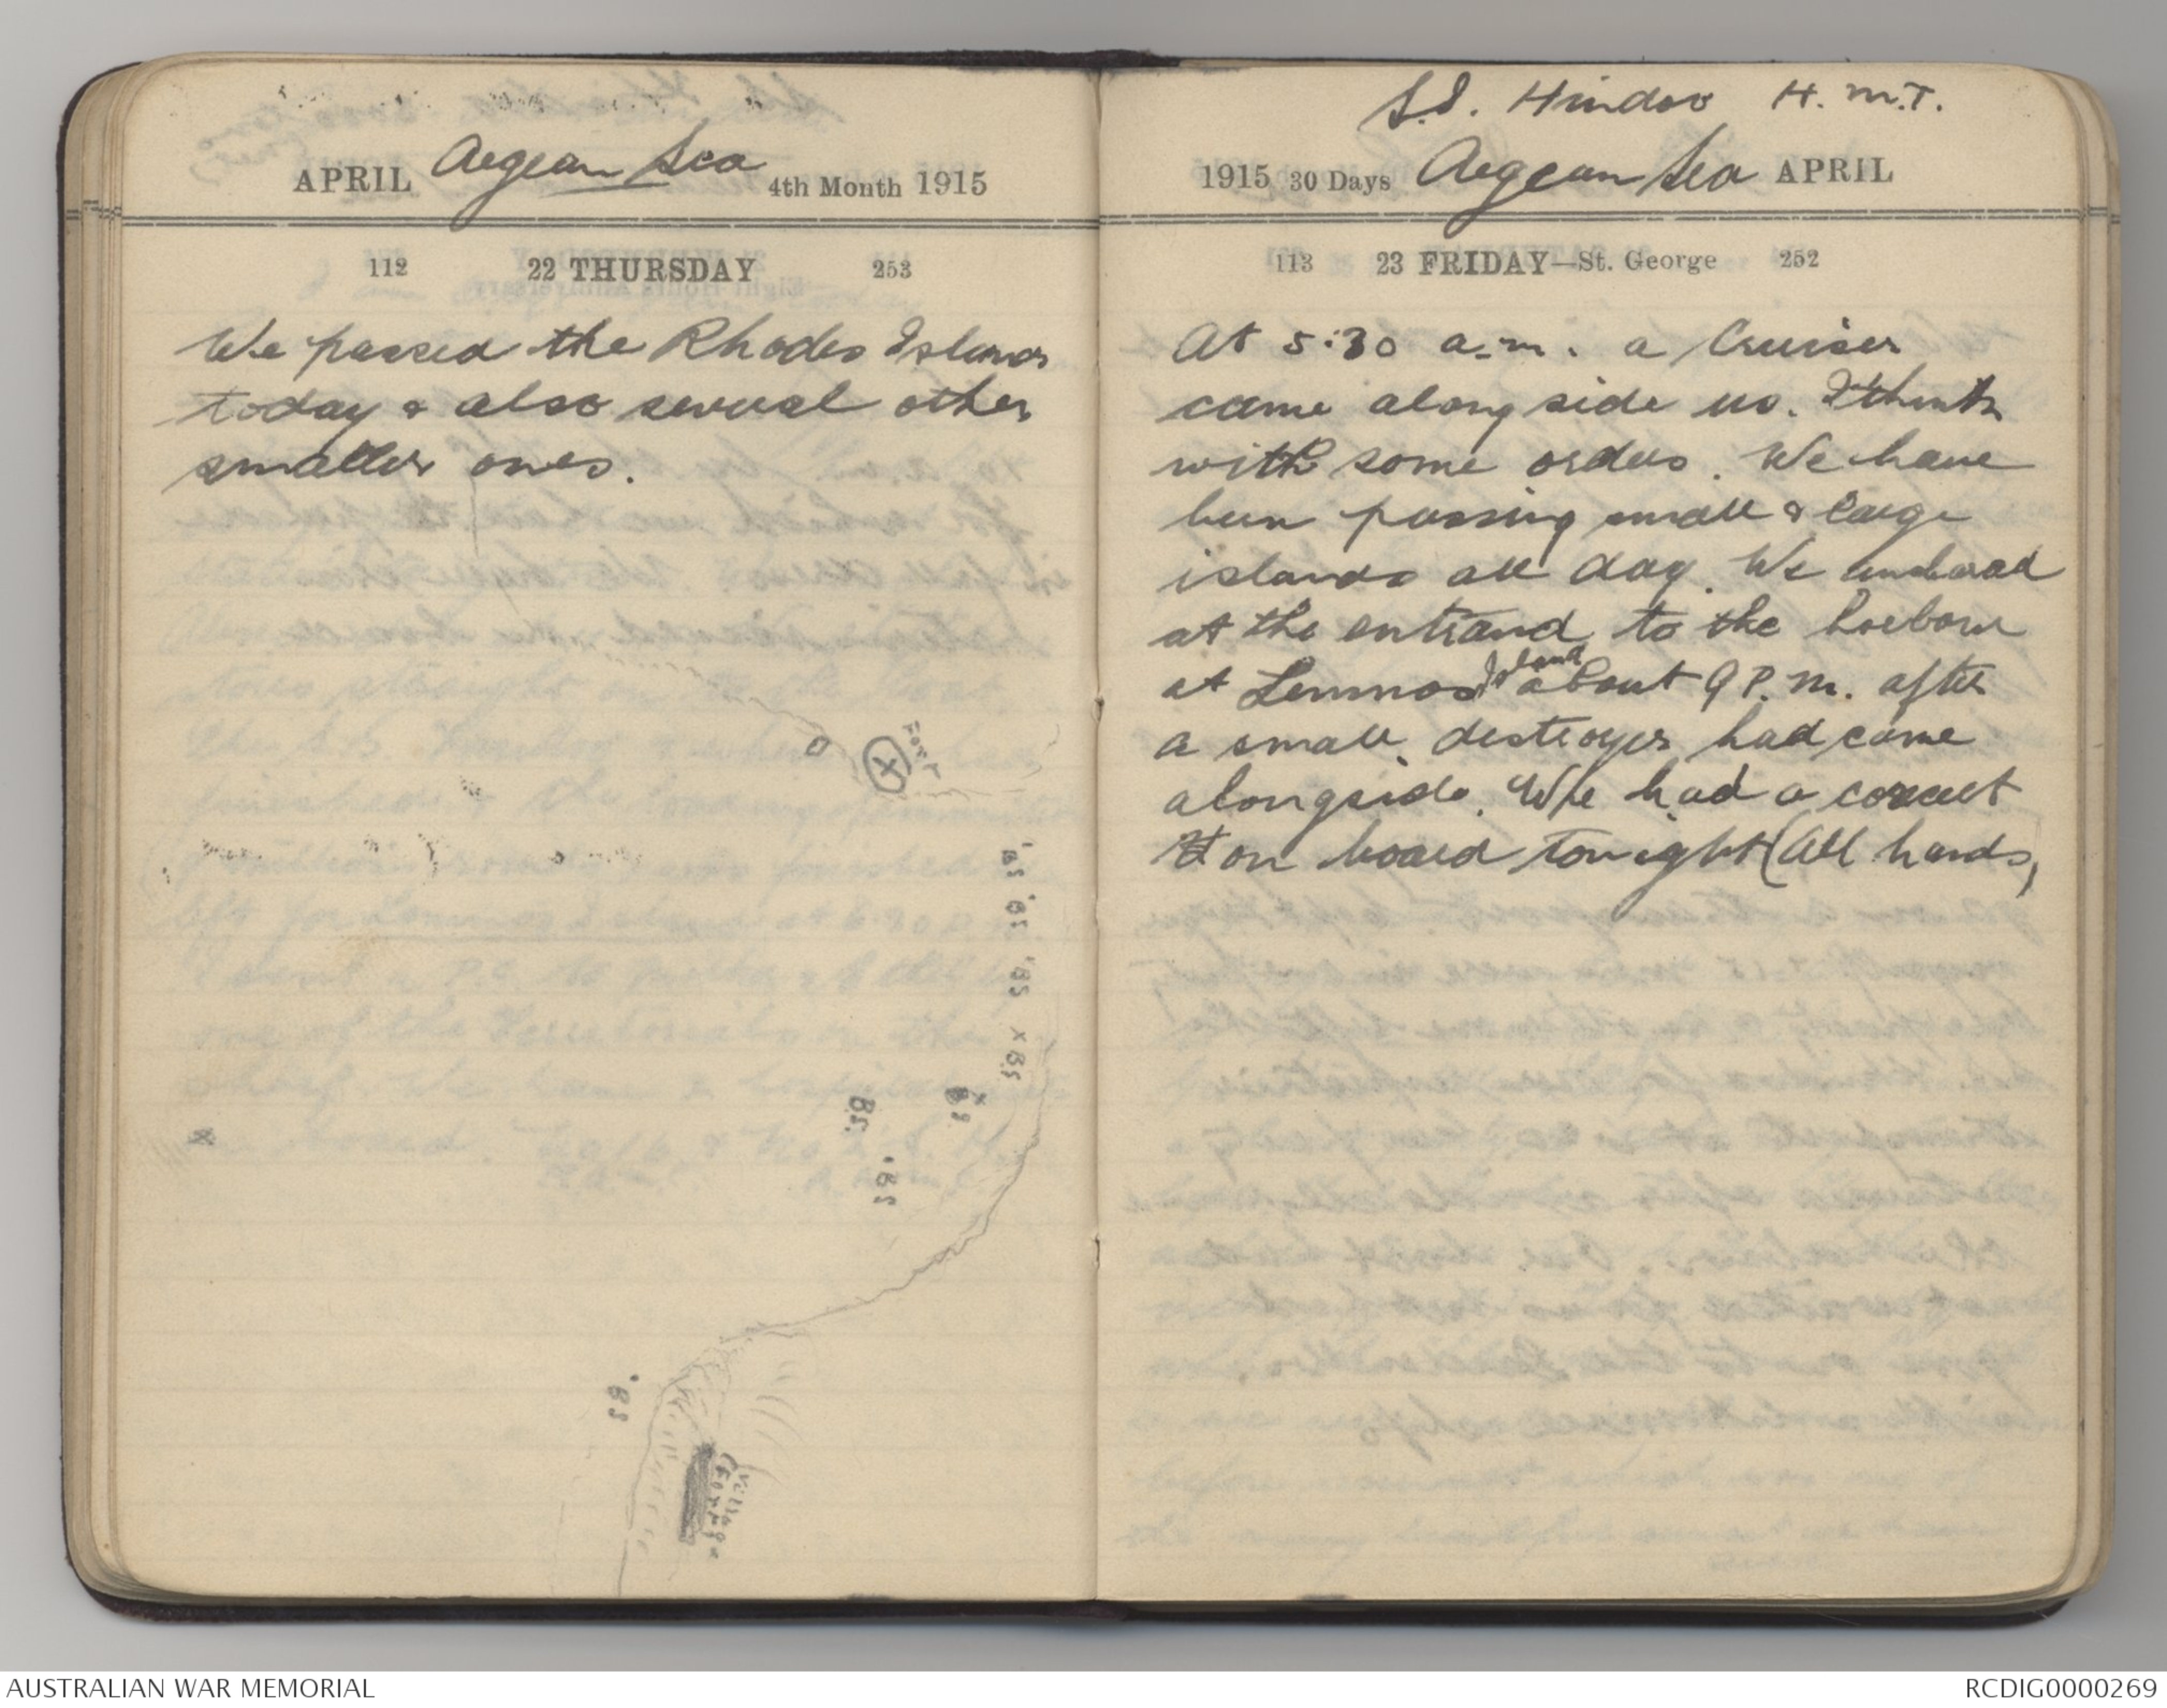 Aegean Sea
APRIL 4th Month 1915
112 22 THURSDAY 253
We passed the Rhodes Islands
today & also several other
smaller ones.
FORT
BS
BS
BS
x BS
BS.
BS.
BS
BS
x
Village
(FORT)
S.S. Hindoo H.M.T.
1915 30 Days Aegean Sea APRIL
113 23 FRIDAY—St. George 252
At 5:30 a.m. a Cruiser
came along side us. I think
with some orders. We have
been passing small & large
islands all day. We anchored
at the entrance to the harbour
at Lemnos Island about 9 P.M. after
a small destroyer had come
alongside. We had a concert
on board tonight (All hands)
AUSTRALIAN WAR MEMORIAL
RCDIG0000269